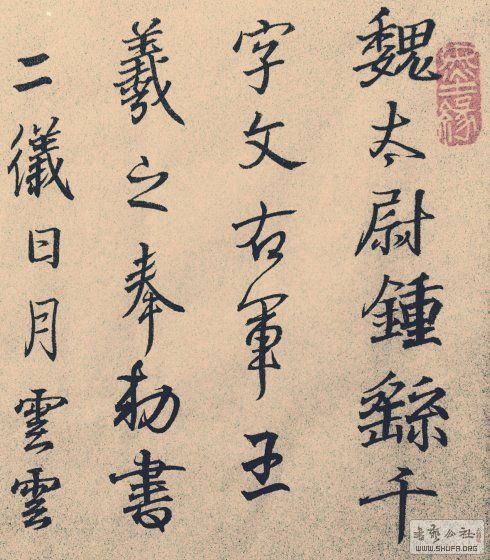 魏太尉鍾繇千
字文右軍王
羲之奉勑書
二儀日月雲雲
WWW.SHUFA.ORG